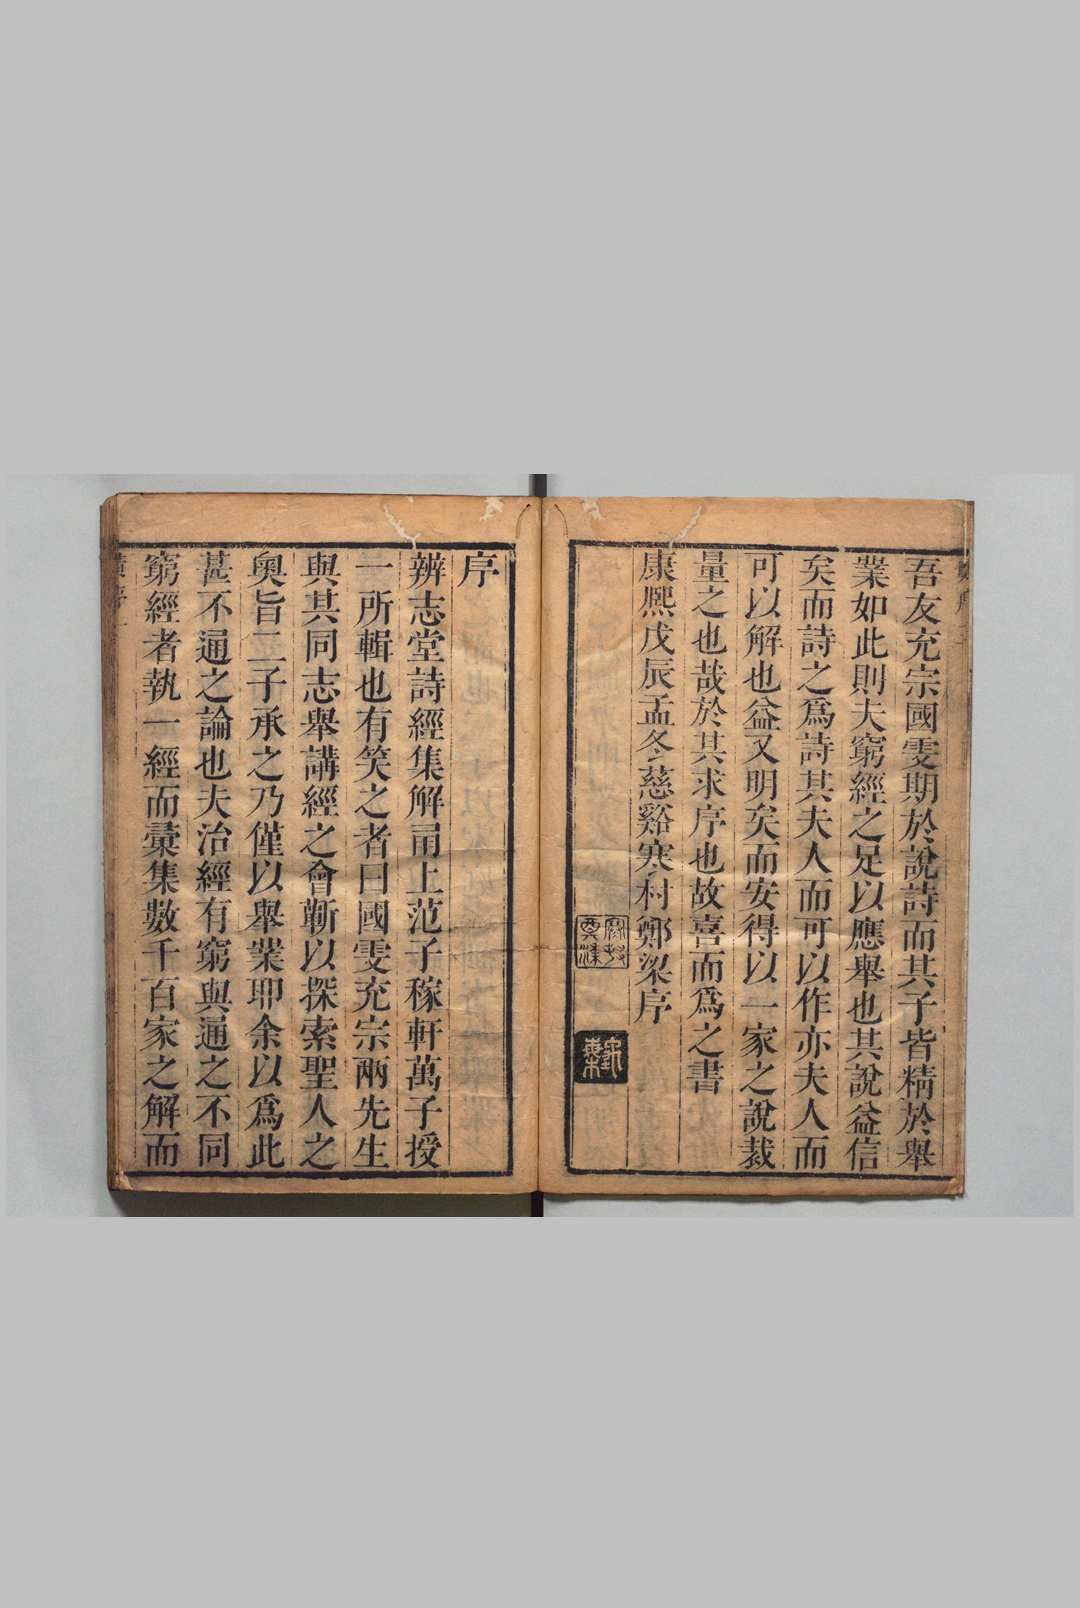 吾友充宗國雯期於說詩而其子皆精於舉
業如此則夫窮經之足以應舉也其說益信
矣而詩之爲詩其夫人而可以作亦夫人而
可以解也益又明矣而安得以一家之說裁
量之也哉於其求序也故喜而爲之書
康熈戊辰孟冬慈谿寒村鄭梁序
序
辨志堂詩經集解甬上范子稼軒萬子授
一所輯也有笑之者曰國雯充宗兩先生
與其同志舉講經之會蘄以探索聖人之
奧旨二子承之乃僅以舉業卽余以爲此
甚不通之論也夫治經有窮與通之不同
窮經者執一經而彚集數千百家之解而